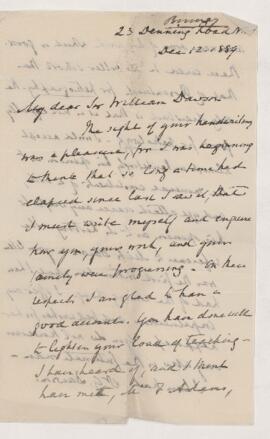 23 Denning Road N.W.
Dec 12. 1889.
My dear Sir William Dawson
The sight of your handwriting
was a pleasure, for I was beginning
to think that so long a time had
elapsed since last I saw it, that
I must write myself and enquire
how you, your work, and your
family were progressing - On these
respects I am glad to have a
good account. You have done well
to lighten your load of teaching -
I have heard of and I think
have met, Mr F Adams,